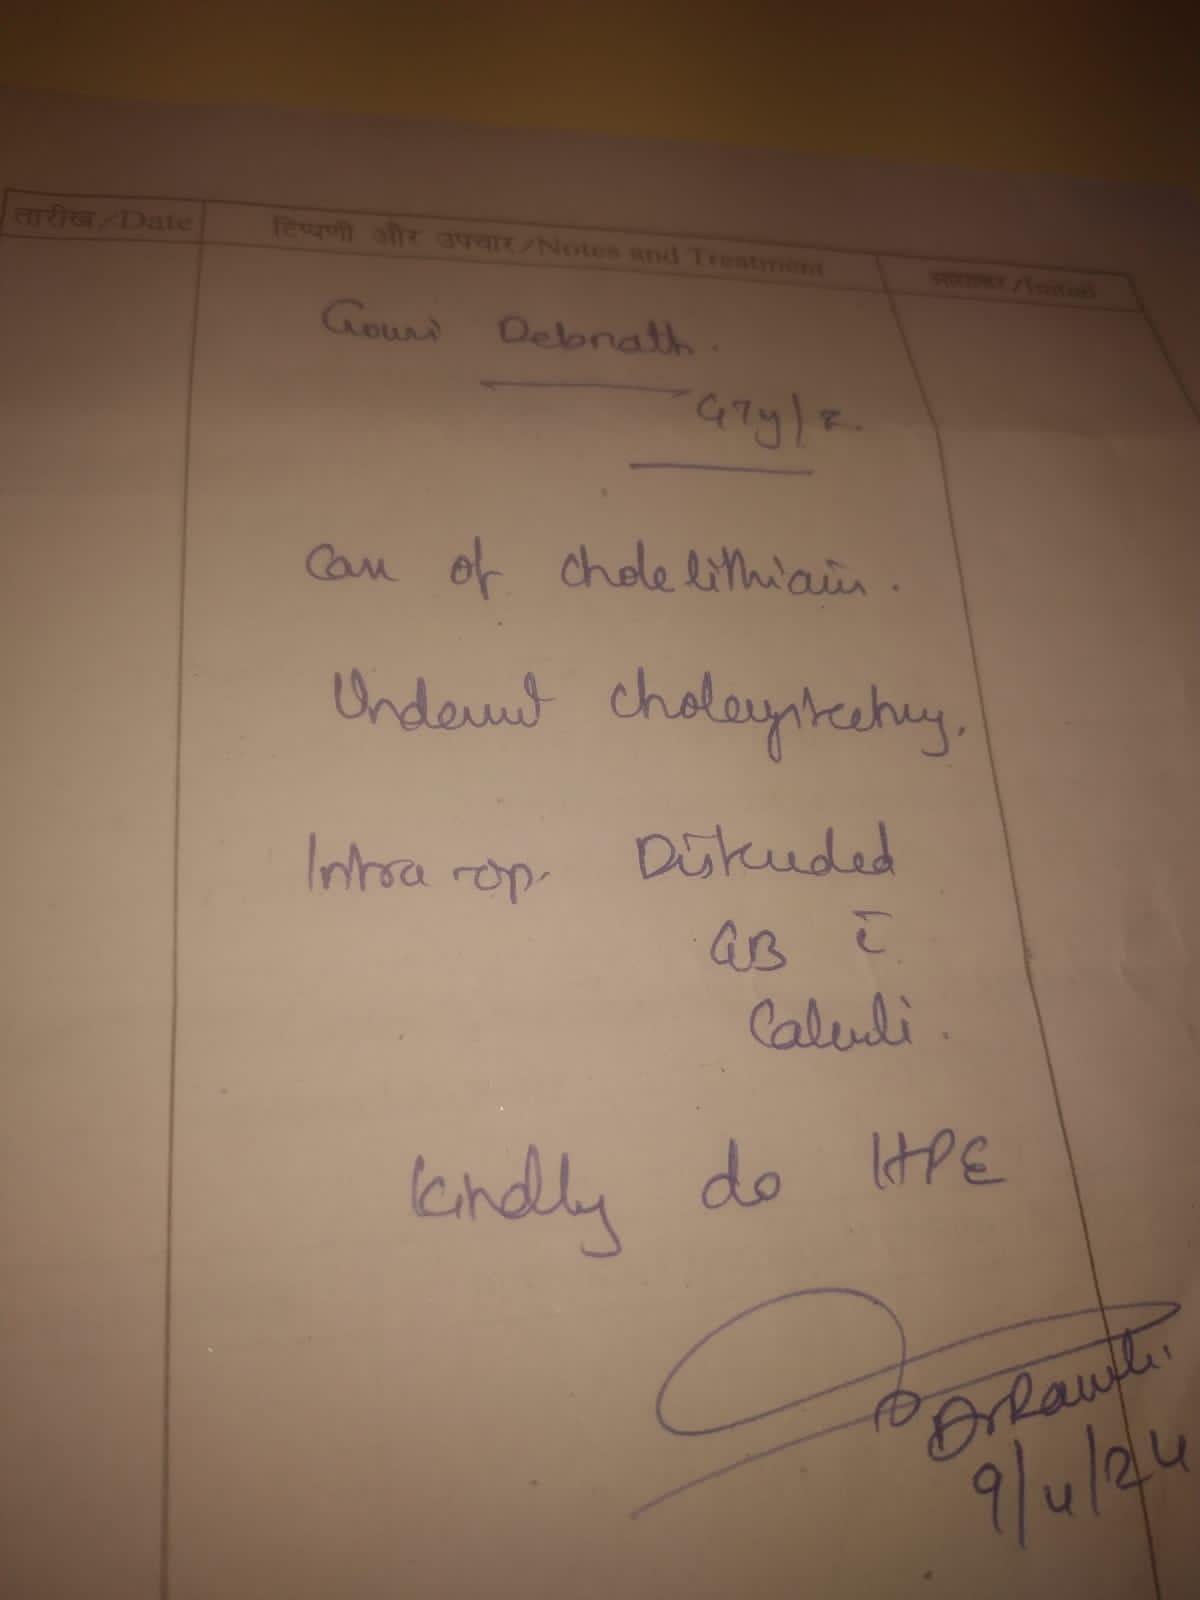 तारीख/Date
टिप्पणी और उपचार/Notes and Treatment
/Issued
Gouri Debnath.
47y/F.
Case of cholelithiasis.
Underwent cholecystectomy.
Intra-op. Distended
GB c̄
Calculi.
Kindly do HPE
Dr
9/4/24